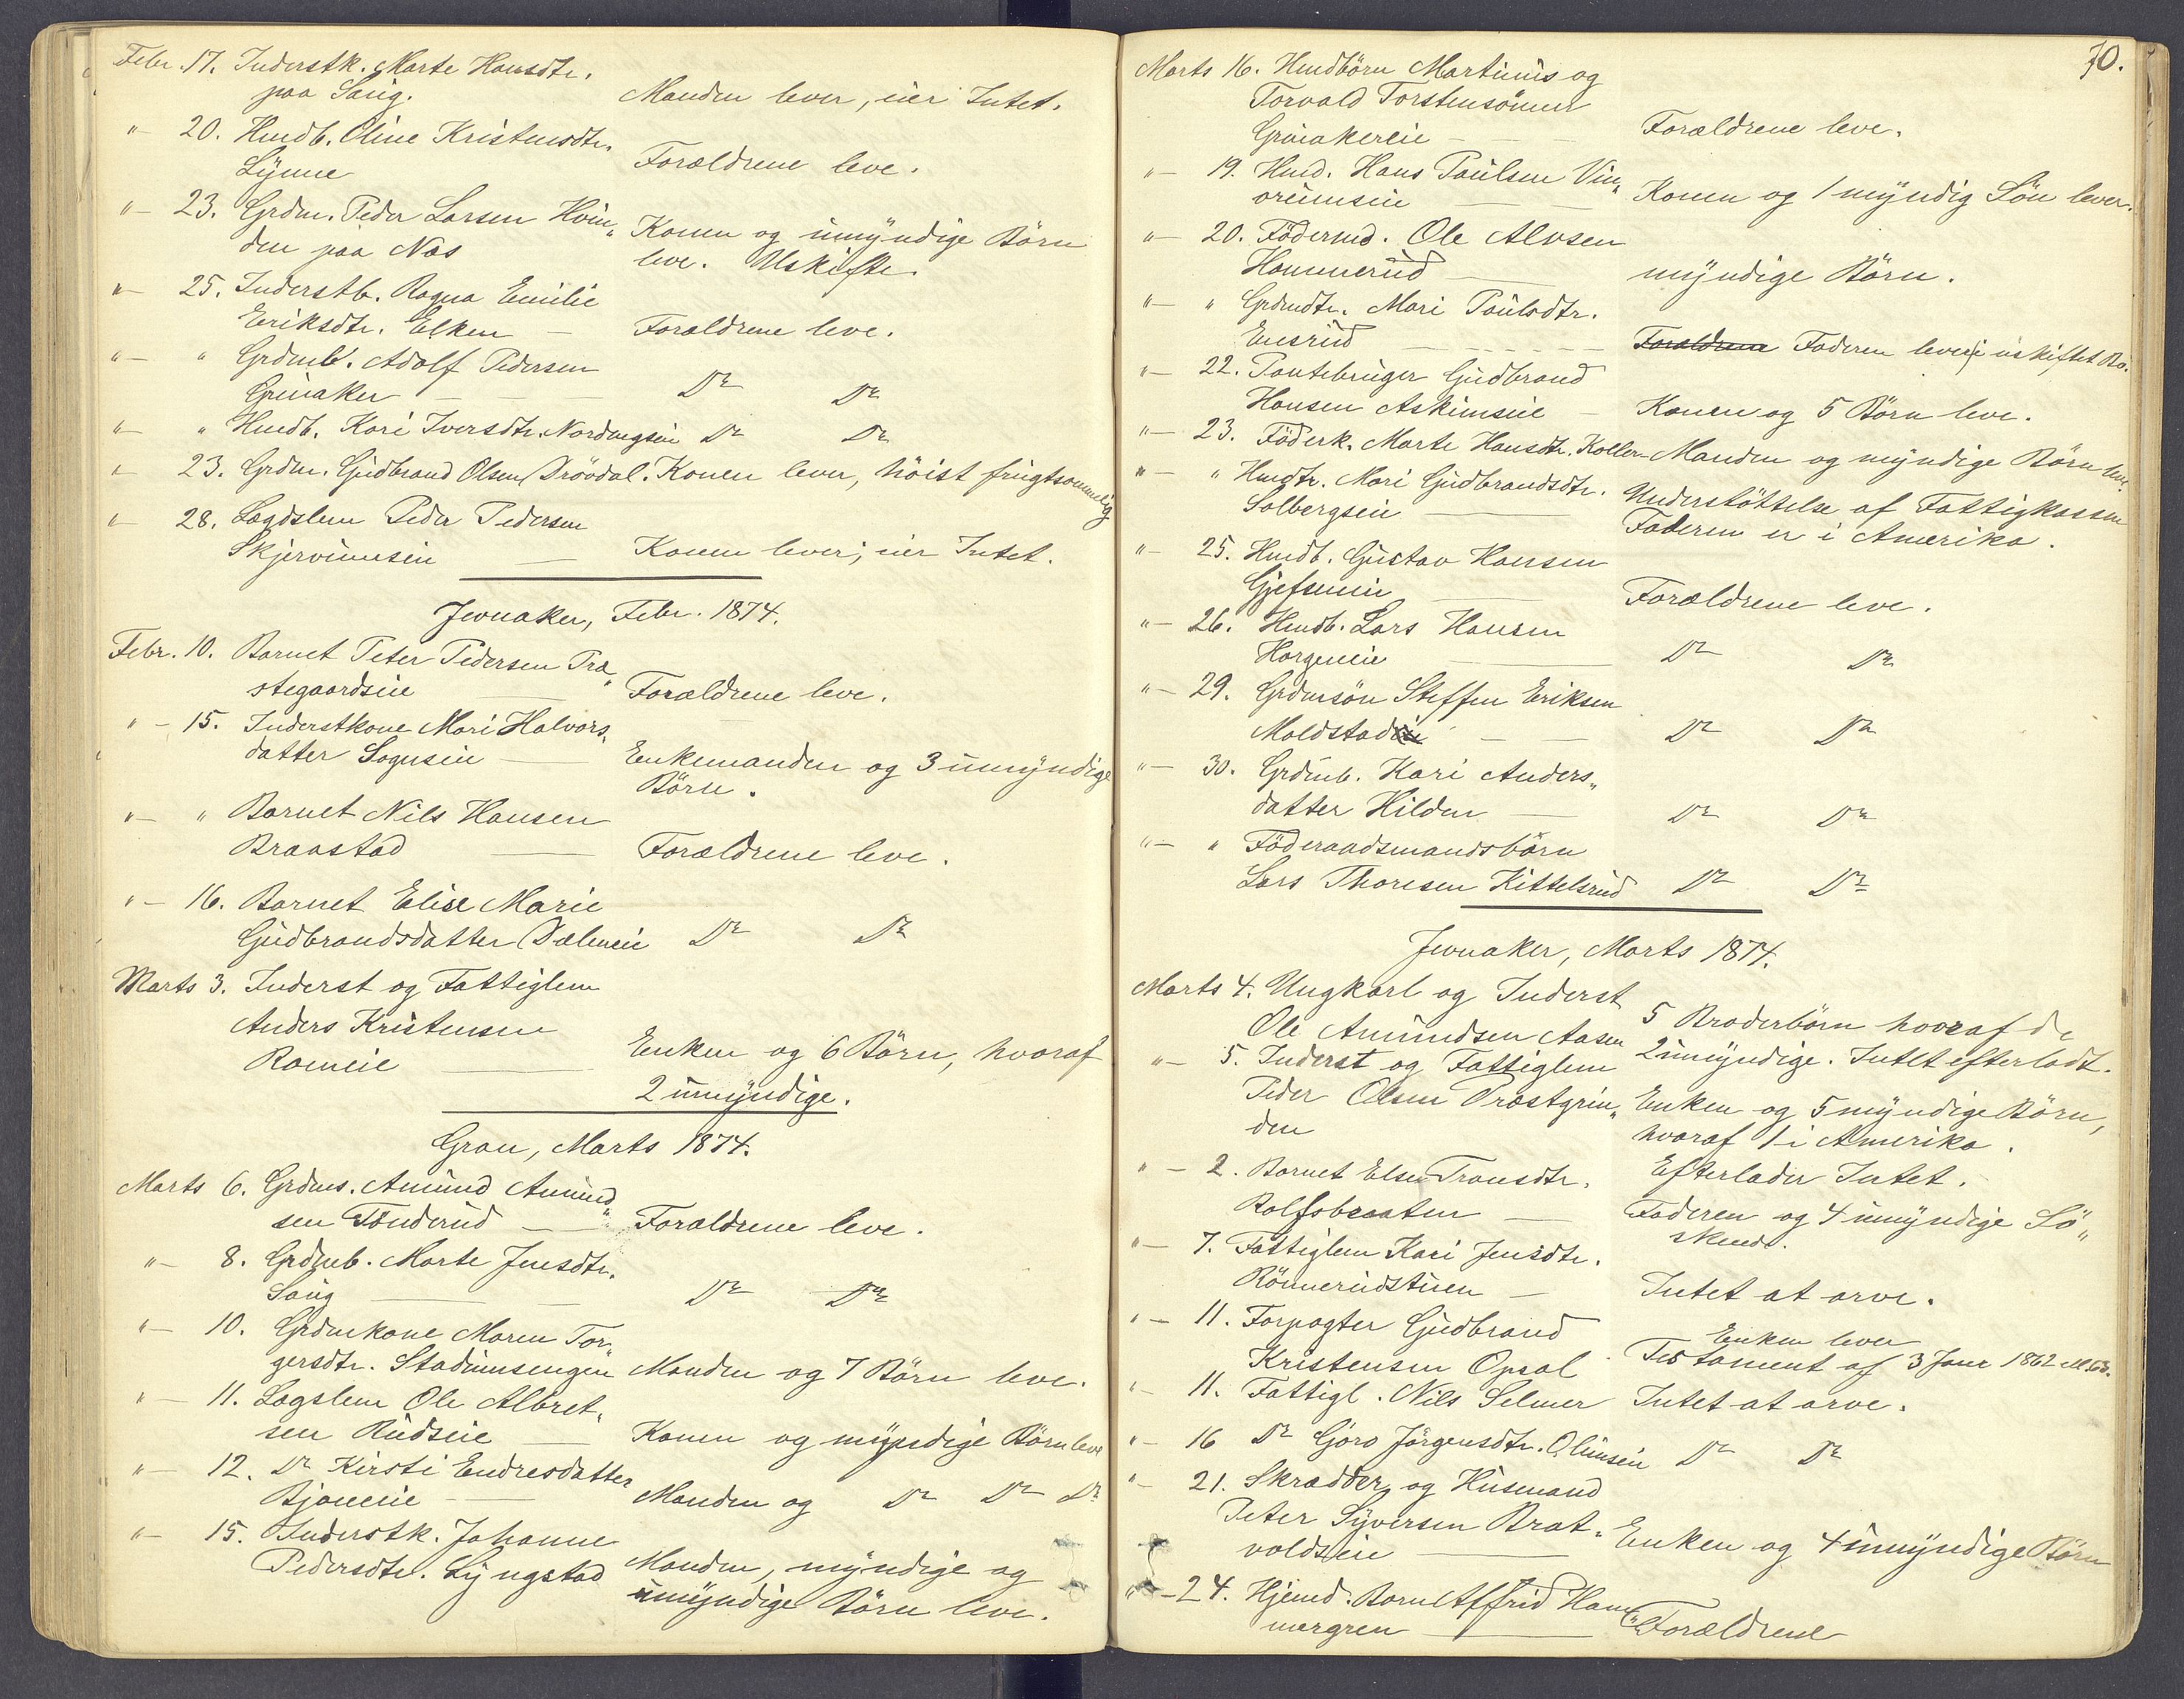 Febr. 17. Inderstk. Marte Hansdtr.
paa Sang. Manden lever, eier Intet.
"- 20. Husdb. Oline Kristensdtr.
Lynne Forældrene leve.
"- 23. Grdm. Peder Larsen Hvin„
den paa Næs Konen og umyndige Börn
leve. Uskifte.
"- 25. Inderstb. Ragna Emilie
Eriksdtr. Elken — Forældrene leve.
"- " Grdmb. Adolf Pedersen
Grinaker — — Do Do
"- " Husdb. Kari Iversdtr. Nordengseie Do Do
"- 23. Grdm. Gudbrand Olsen Drövdal. Konen lever, höist frugtsommelig
"- 28. Lægdslem Peder Pedersen
Skjervumseie — Konen lever; eier Intet.
Jevnaker, Febr. 1874.
Febr. 10. Barnet Peter Pedersen Præ„
stegaardseie — Forældrene leve.
"- 15. Inderstkone Mari Halvors„
datter Sognseie — Enkemanden og 3 umyndige
Börn.
"- " Barnet Nils Hansen
Braastad — Forældrene leve.
"- 16. Barnet Elise Marie
Gudbrandsdatter Dæleneie Do Do
Marts 3. Inderst og Fattiglem
Anders Kristensen
Roeneie — Enken og 6 Börn, hvoraf
2 umyndige.
Gran, Marts 1874.
Marts 6. Grdms. Amund Amund„
sen Tönderud — Forældrene leve.
"- 8. Grdmb. Marte Jensdtr.
Sang — — Do Do
"- 10. Grdmkone Maren Tor„
gersdtr. Stadumsengen Manden og 7 Börn leve.
"- 11. Lægslem Ole Albret„
sen Rudseie — Konen og myndige Börn leve
"- 12. Do Kirsti Endresdatter
Bjoneeie — Manden og Do Do Do
"- 15. Inderstk. Johanne
Pedersdtr. Lyngstad Manden, myndige og
umyndige Börn leve.
70.
Marts 16. Husdbörn Martinus og
Torvald Torstensönner
Grinakereie — Forældrene leve.
"- 19. Husd. Hans Paulsen Vin„
orumseie — Konen og 1 myndig Sön lever.
"- 20. Föderaad. Ole Alvsen
Hammerud — myndige Börn.
"- " Grdmdtr. Mari Paulsdtr.
Ensrud — Forældrene Faderen lever i uskiftet Bo.
"- 22. Pantebruger Gudbrand
Hansen Askimseie — Konen og 5 Börn leve.
"- 23. Föderk. Marte Hansdtr. Koller- Manden og myndige Börn leve.
"- " Husdtr. Mari Gudbrandsdtr. Understöttelse af Fattigkassen
Solbergseie — Faderen er i Amerika.
"- 25. Husdb. Gustav Hansen
Gjefseneie — Forældrene leve.
"- 26. Husdb. Lars Hansen
Horgeneie — Do Do
"- 29. Grdmsön Steffen Eriksen
Molstad — — Do Do
"- 30. Grdmb. Kari Anders„
datter Hilden — Do Do
"- " Föderaadsmandsbörn
Lars Thoresen Kittelsrud Do Do
Jevnaker, Marts 1874.
Marts 4. Ungkarl og Inderst
Ole Amundsen Aasen 5 Broderbörn hvoraf de
2 umyndige. Intet efterladt.
"- 5. Inderst og Fattiglem
Peder Olsen Præstgrin„ Enken og 5 myndige Börn,
den hvoraf 1 i Amerika.
"- 2. Barnet Else Transdtr. Efterlader Intet.
Rolfsbraaten — Faderen og 4 umyndige Sö„
skende.
"- 7. Fattiglem Kari Jensdtr.
Rönnerudstuen — Intet at arve.
"- 11. Forpagter Gudbrand Enken lever
Kristensen Opsal Testament af 3 Janr 1862
"- 11. Fattigl. Nils Selmer Intet at arve.
"- 16 Do Göro Jörgensdtr. Olumseie Do Do
"- 21. Skrædder og Husmand
Peter Syversen Brat„ Enken og 4 umyndige Börn
voldseie —
"- 24. Hjemd. Barn Alfrid Ham„
mergren — Forældrene